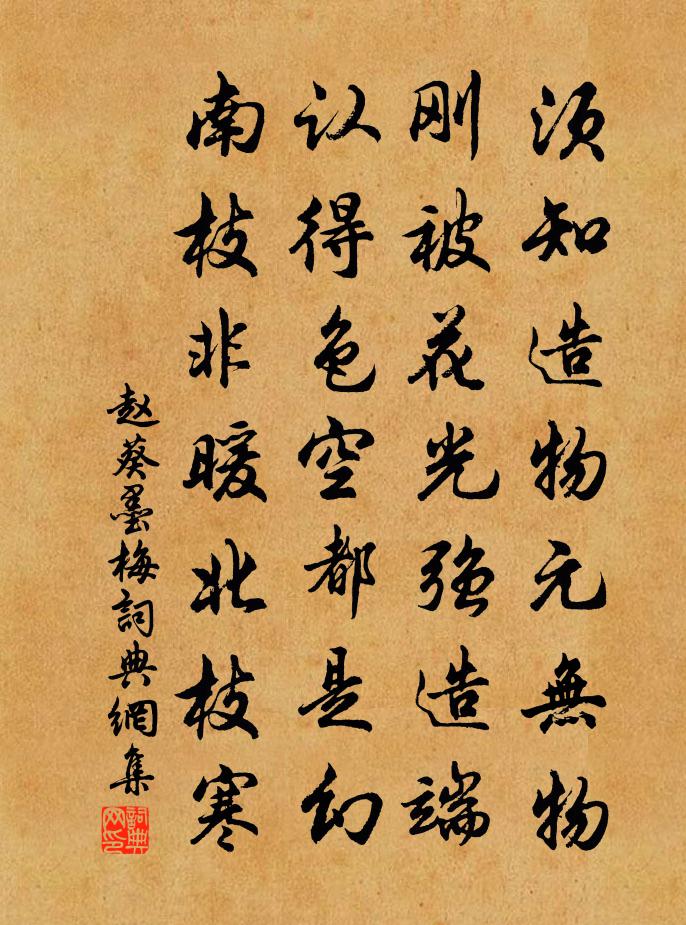 须知造物元無物
刚被花光強造端
认得色空都是幻
南枝非暖北枝寒
赵葵墨梅詞典網集
詞典网印